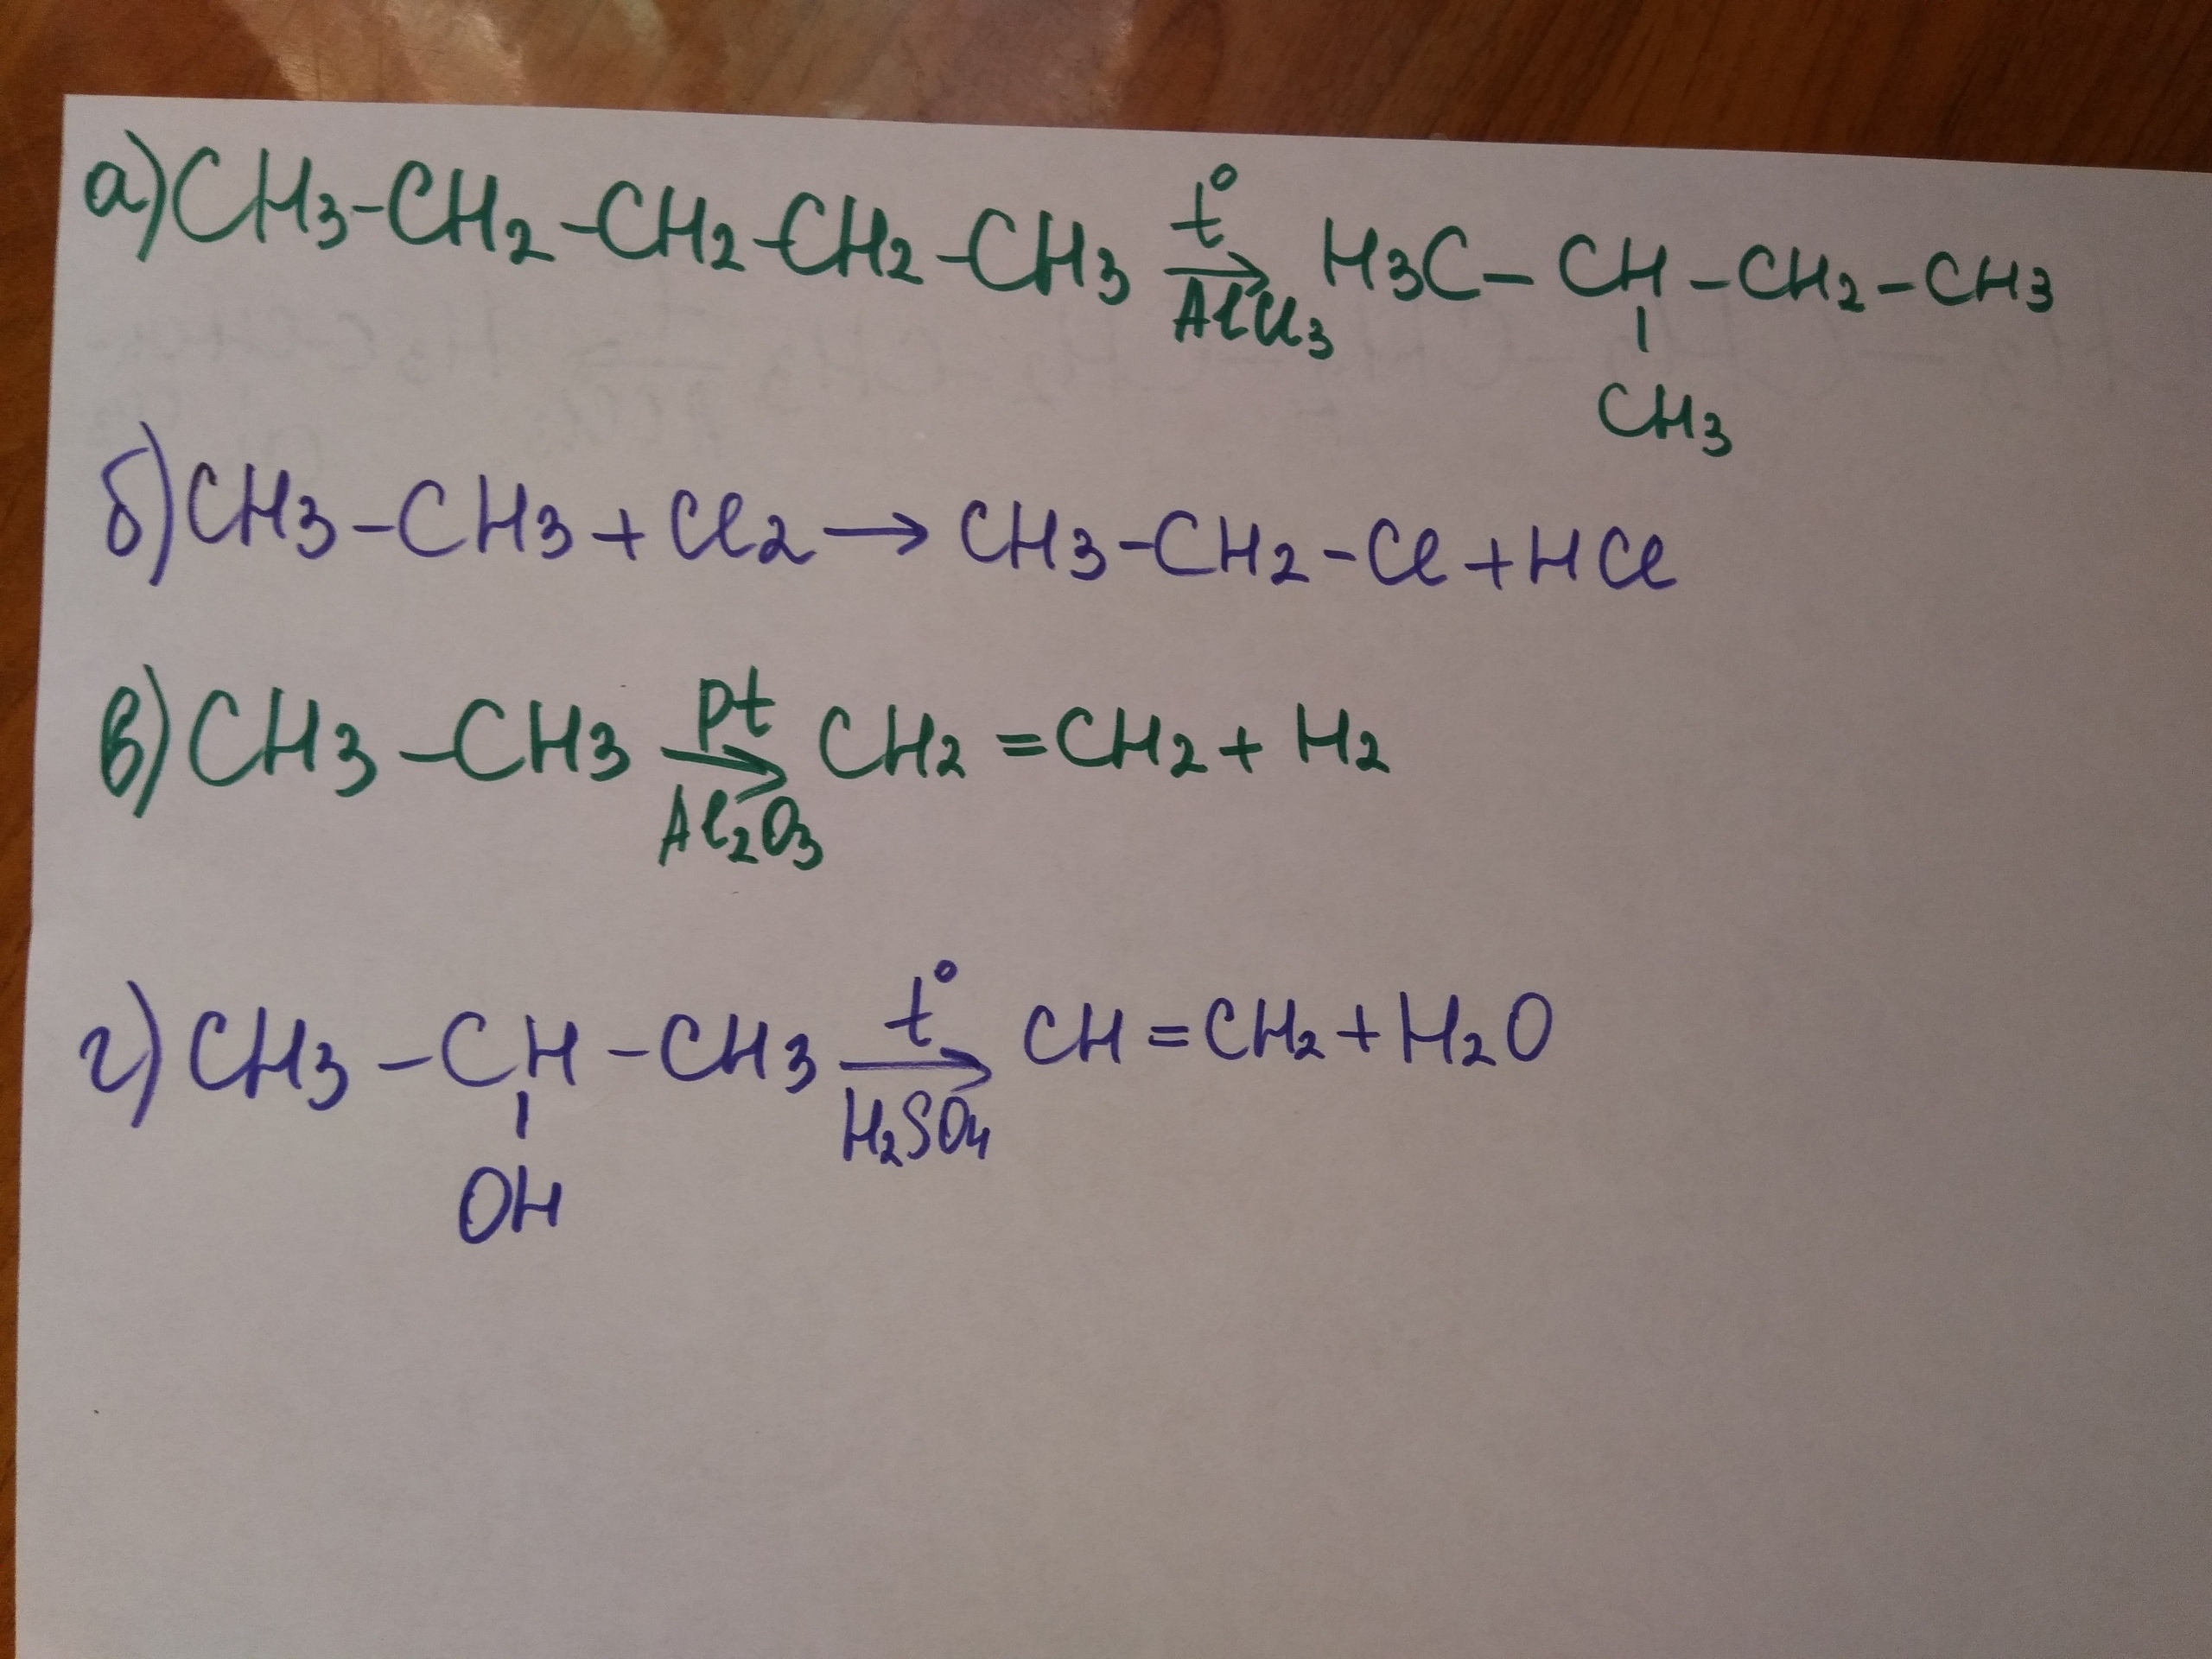 а) CH3-CH2-CH2-CH2-CH3 t° → AlCl3 H3C-CH-CH2-CH3
CH3
б) CH3-CH3 + Cl2 → CH3-CH2-Cl + HCl
в) CH3-CH3 pt → Al2O3 CH2=CH2 + H2
г) CH3-CH-CH3 t° → H2SO4 CH=CH2 + H2O
OH